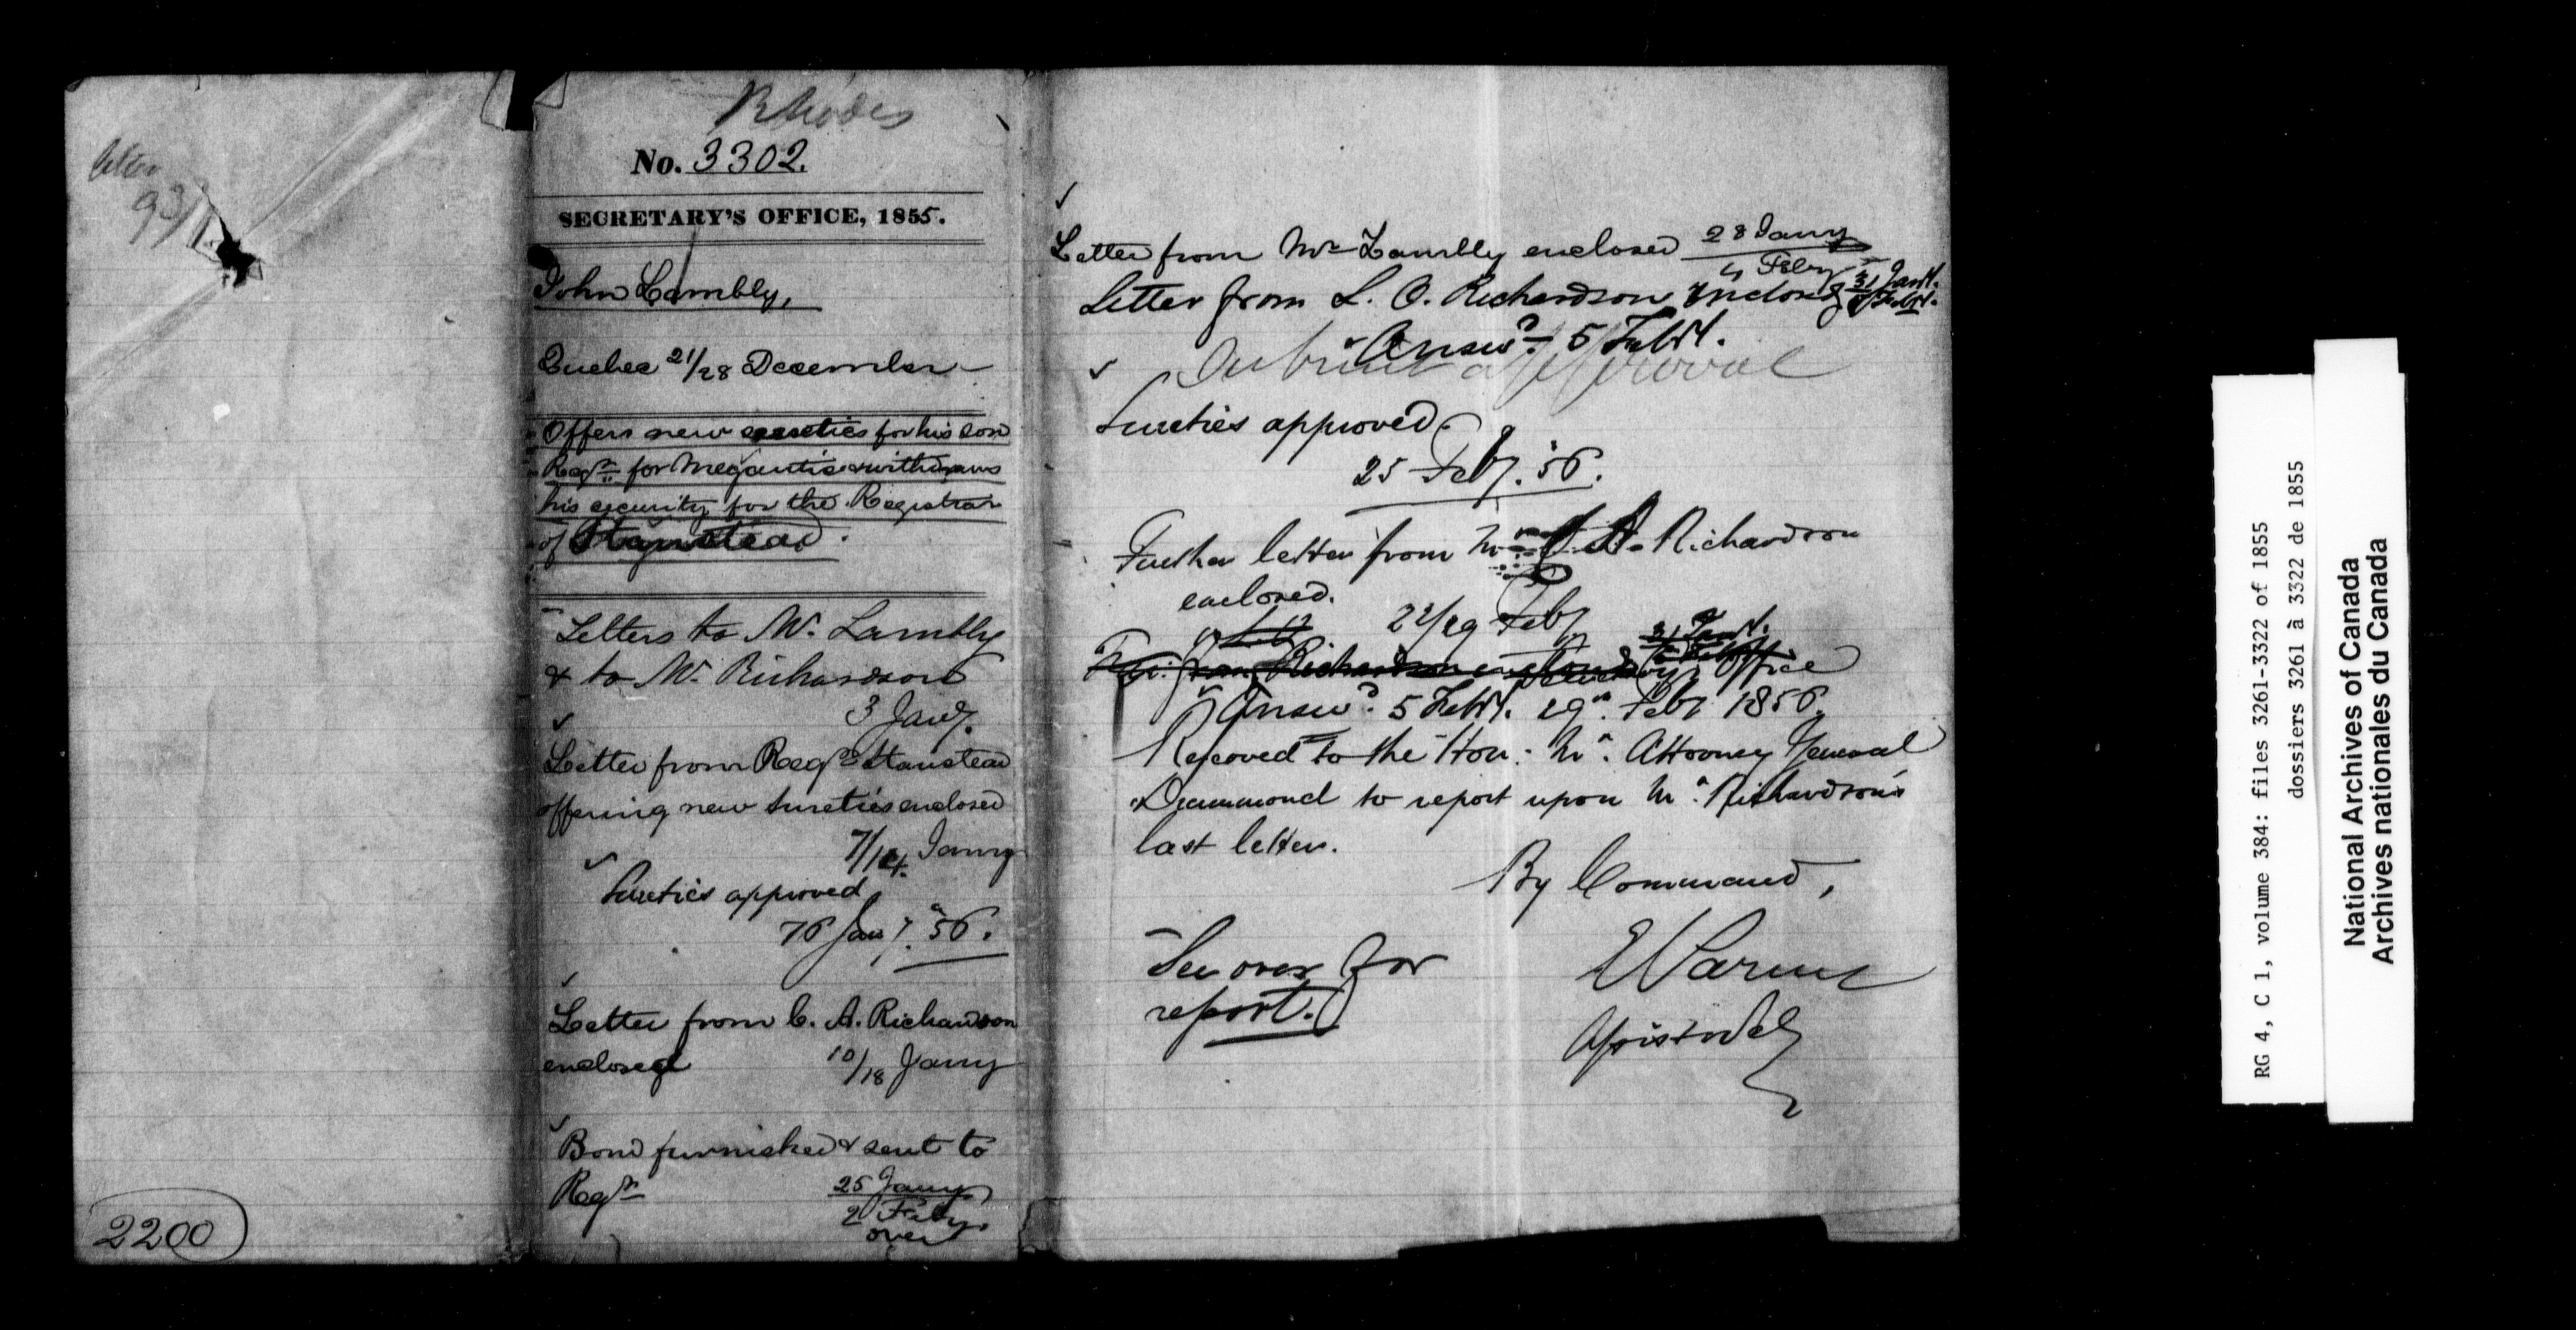 Rhodes
No. 3302.
SECRETARY'S OFFICE, 1855.
John Lambly,
Quebec 21/28 December
Offers new sureties for his son
Regr. for Megantic & withdraws
his security for the Registrar
of Stanstead.
Letters to Mr. Lambly
& to Mr. Richardson
3 Jany.
Letter from Regr. Stanstead
offering new sureties enclosed
7/14 Jany
Sureties approved
16 Jany. '56.
Letter from C. A. Richardson
enclosed 10/18 Jany
Bond furnished & sent to
Regr. 25 Jany
2 Feby.
over
2200
Letter from Mr. Lambly enclosed 28 Jany
4 Feby
Letter from L. O. Richardson enclosed 31 Jany.
Answd. 5 Feby.
approval
Sureties approved.
25 Feby. '56.
Further letter from Mr. C. A. Richardson
enclosed.
22/29 Feby
from Richardson enclosed 31 Jany.
Secy's Office
Answd. 5 Feby. 29. Feby 1856.
Referred to the Hon: Mr. Attorney General
Drummond to report upon Mr. Richardson's
last letter.
By Command,
See over for
report.
RG 4, C 1, volume 384: files 3261-3322 of 1855
dossiers 3261 à 3322 de 1855
National Archives of Canada
Archives nationales du Canada